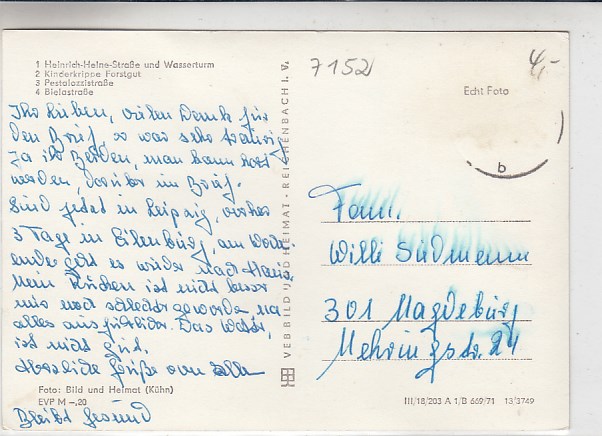 1 Heinrich-Heine-Straße und Wasserturm
2 Kinderkrippe Forstgut
3 Pestalozzistraße
4 Bielastraße
Ihr Lieben, vielen Dank für
den Brief, so war sehr traurig
ja ihr Beiden, man kann
werden, darüber im Brief.
Sind jetzt in Leipzig, vorher
3 Tage in Eilenburg, am Woch.
ende geht es wieder nach Haus.
Mein Rücken ist nicht besser
nur noch schlechter geworden, na
alles ausführlicher. Das Wetter,
ist nicht gut.
Herzliche Grüße von allen
Foto: Bild und Heimat (Kühn)
EVP M –,20
Bleibt gesund
VEB BILD UND HEIMAT · REICHENBACH I. V.
7152
4,-
Echt Foto
b
Fam.
Willi Südmann
301 Magdeburg
Mehringstr. 24
III/18/203 A 1/B 669/71 13 3749